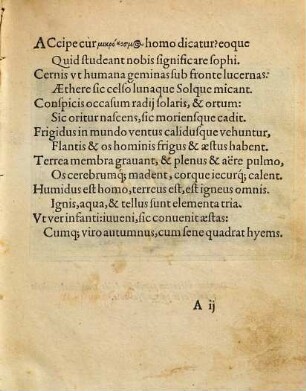 ACcipe cur μικρόκοσμ@ homo dicatur: eoque
Quid studeant nobis significare sophi.
Cernis vt humana geminas sub fronte lucernas:
Æthere sic celso lunaque Solque micant.
Conspicis occasum radij solaris, & ortum:
Sic oritur nascens, sic moriensque cadit.
Frigidus in mundo ventus calidusque vehuntur,
Flantis & os hominis frigus & æstus habent.
Terrea membra grauant; & plenus & aëre pulmo,
Os cerebrumq; madent, corque iecurq; calent.
Humidus est homo, terreus est, est igneus omnis.
Ignis, aqua, & tellus sunt elementa tria.
Vt ver infanti: iuueni, sic conuenit æstas:
Cumq; viro autumnus, cum sene quadrat hyems.
A ij